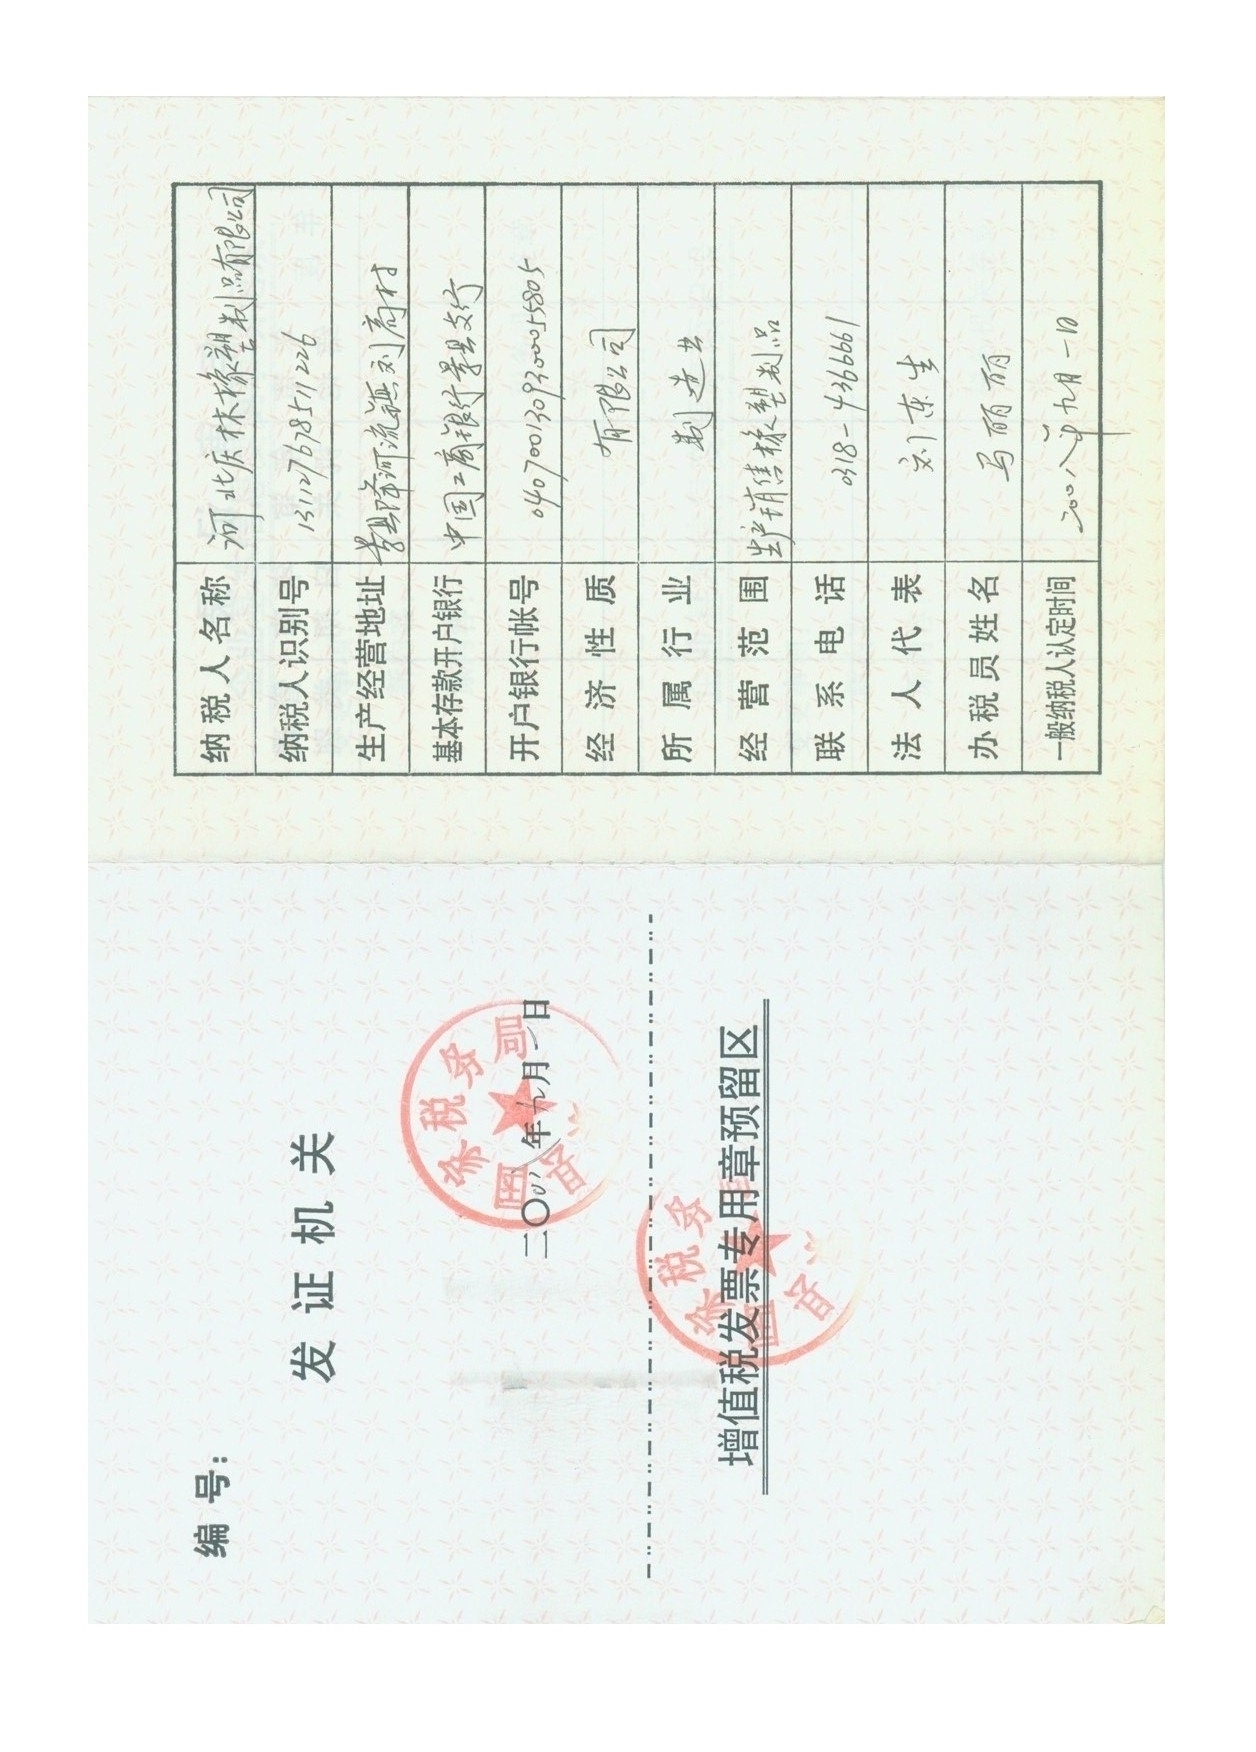 编号:
发证机关
二〇〇八年九月一日
国家税务局
增值税发票专用章预留区
国家税务局
纳税人名称 河北庆林橡塑制品有限公司
纳税人识别号 131127678511226
生产经营地址 景县降河流镇刘高村
基本存款开户银行 中国工商银行景县支行
开户银行帐号 0407001309300055805
经济性质 有限公司
所属行业 制造业
经营范围 生产销售橡塑制品
联系电话 0318-4366661
法人代表 刘东生
办税员姓名 马丽丽
一般纳税人认定时间 二〇〇八年九月一日